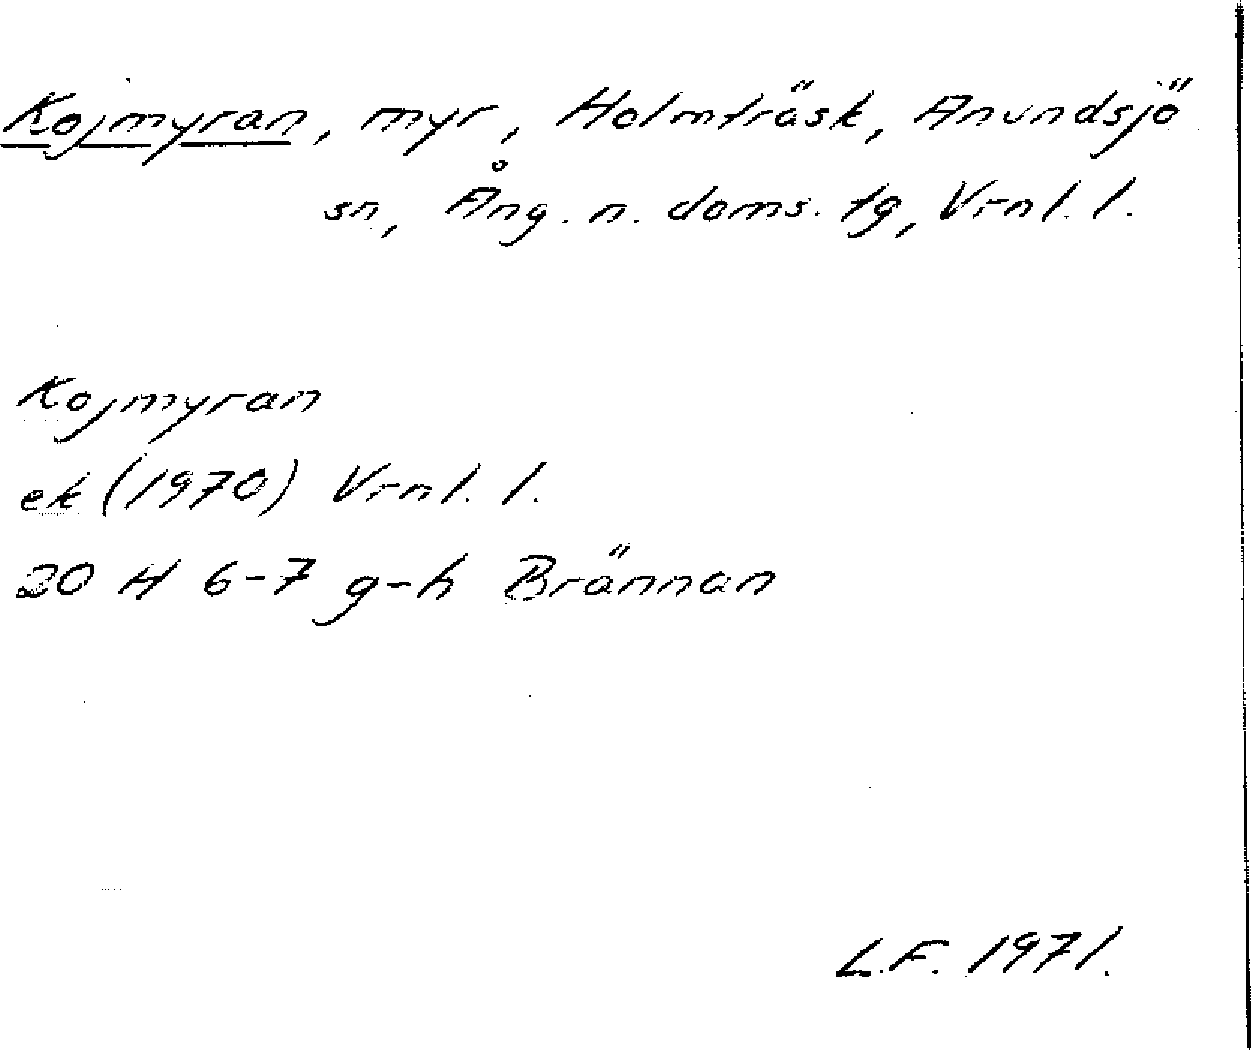 Kojmyran, myr, Holmträsk, Anundsjö
sn, Ång. n. doms. tg, Vrnl. l.
Kojmyran
ek (1970) Vrnl. l.
20 H 6-7 g-h Brännan
L.F. 1971.